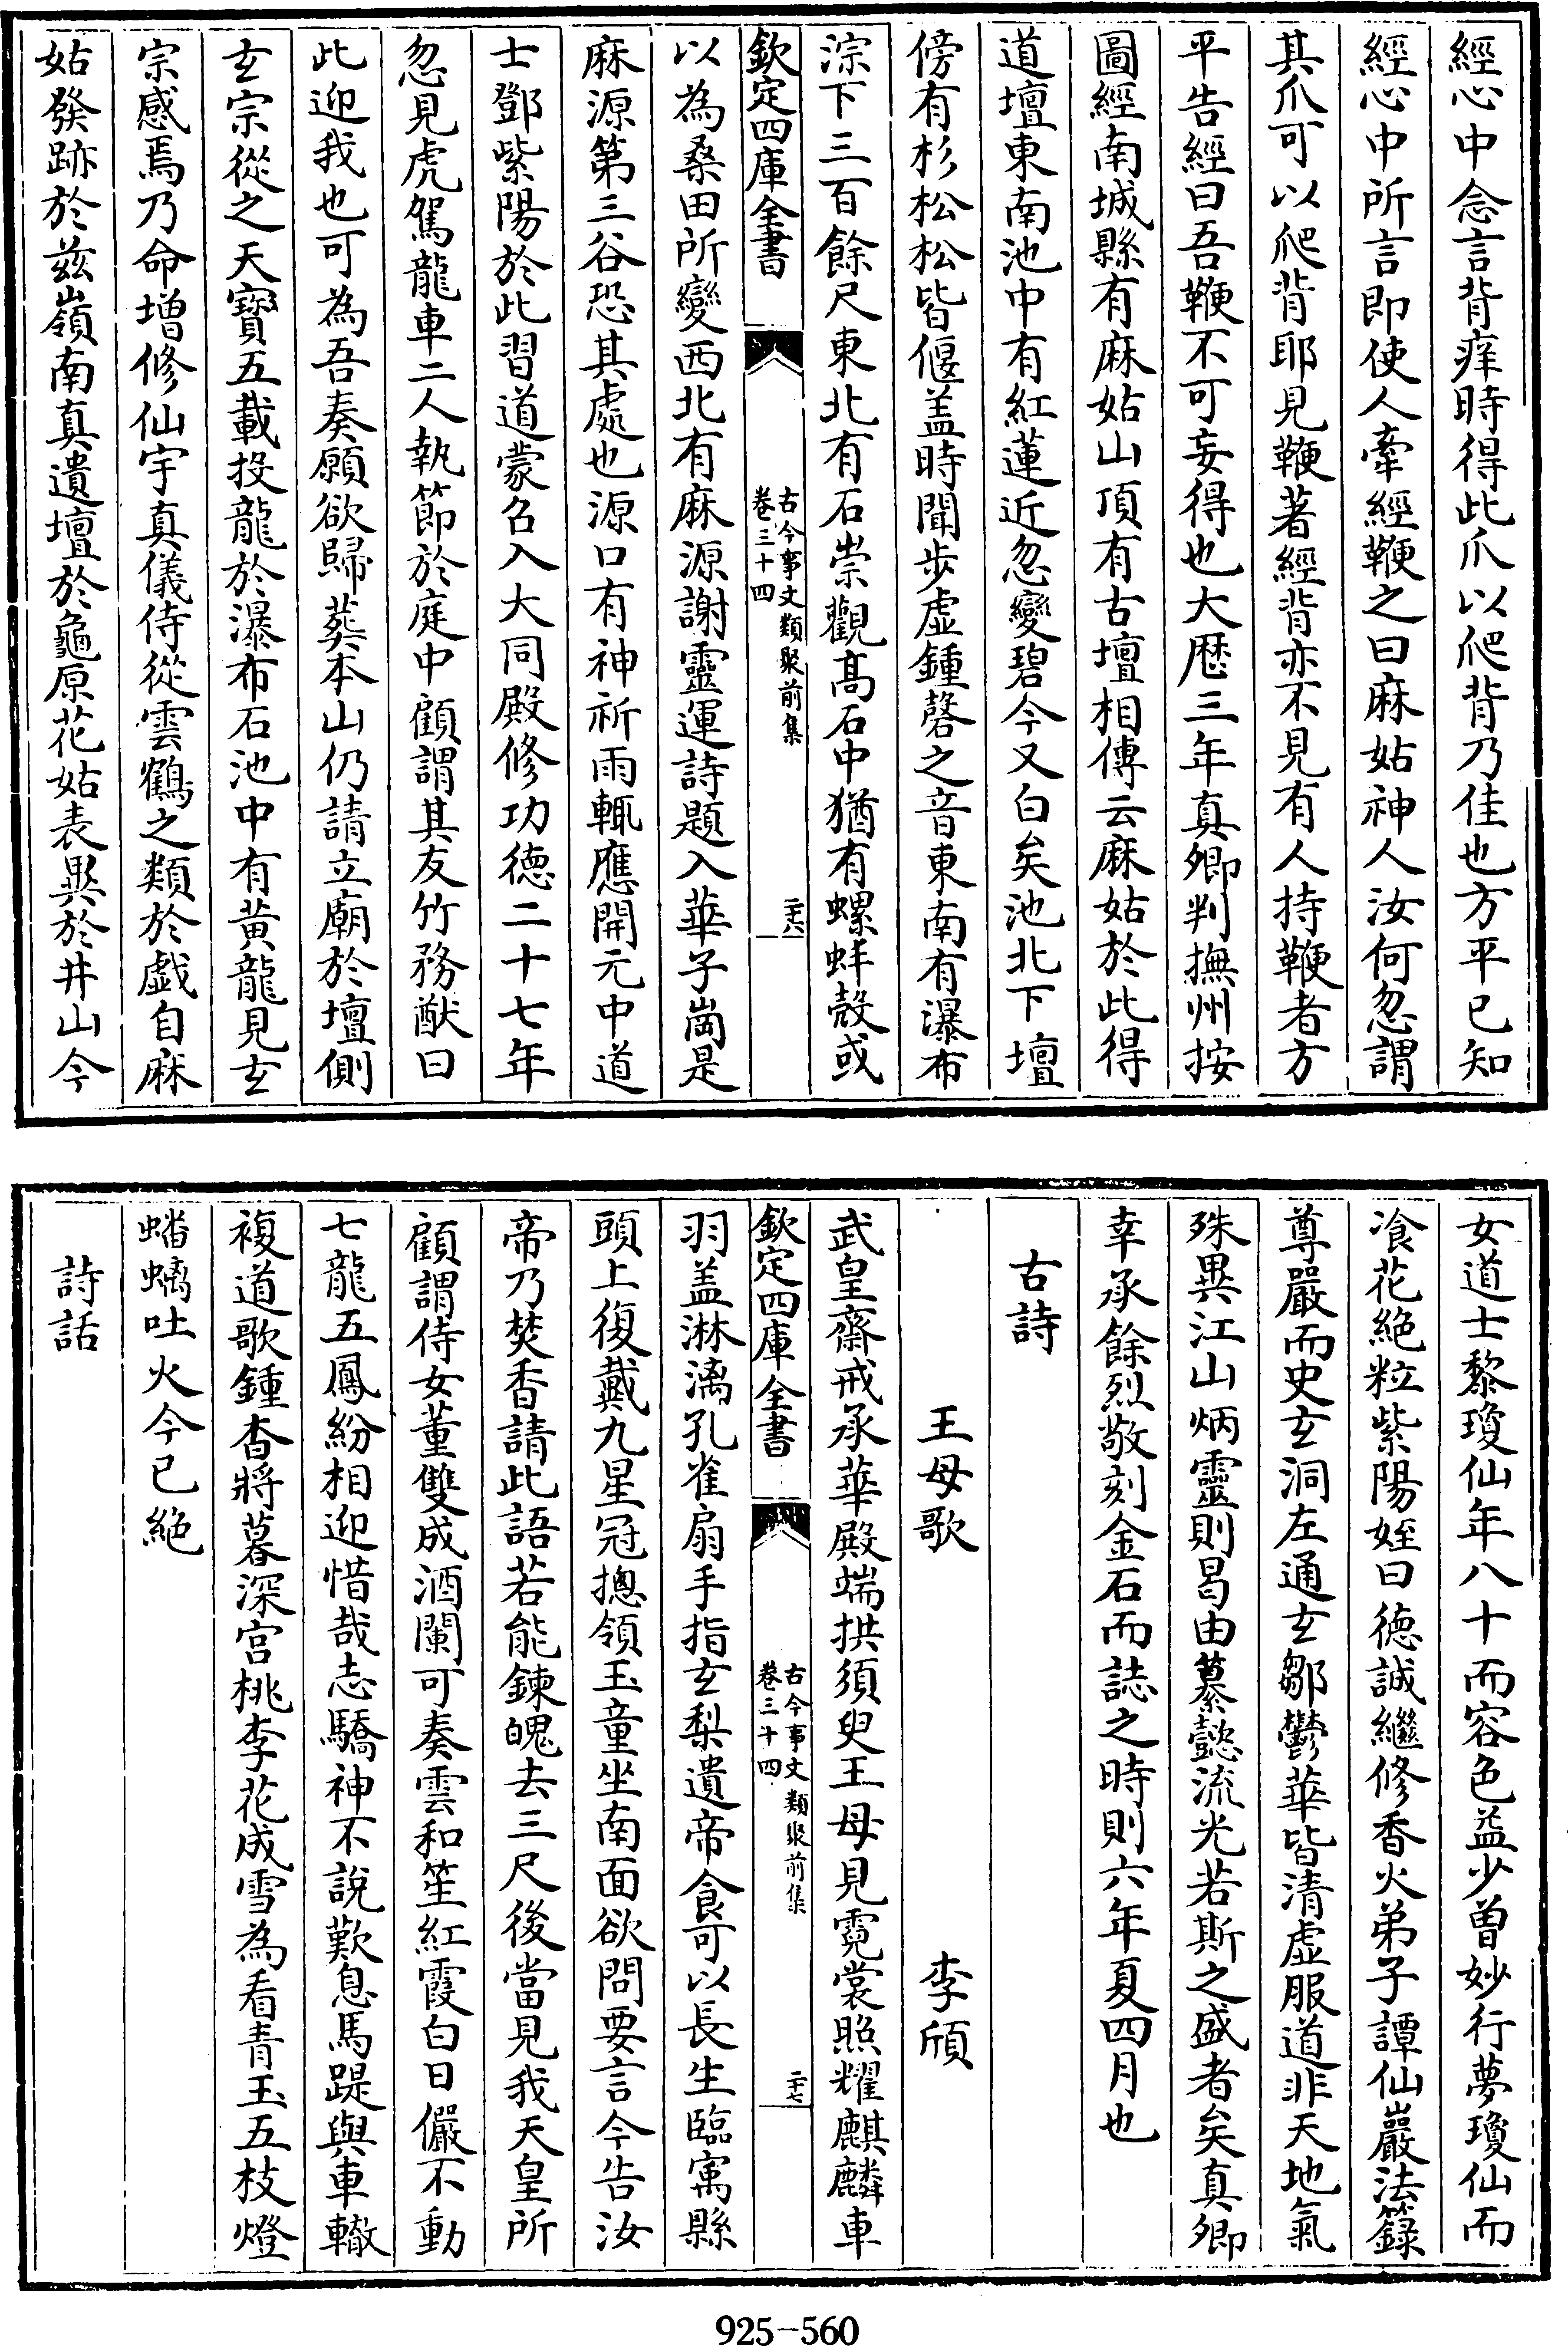 經心中念言背痒時得此爪以爬背乃佳也方平已知
經心中所言即使人牽經鞭之曰麻姑神人汝何忽謂
其爪可以爬背耶見鞭著經背亦不見有人持鞭者方
平告經曰吾鞭不可妄得也大厯三年真卿判撫州按
圖經南城縣有麻姑山頂有古壇相傳云麻姑於此得
道壇東南池中有紅蓮近忽變碧今又白矣池北下壇
傍有杉松松皆偃盖時聞步虚鍾磬之音東南有瀑布
淙下三百餘尺東北有石崇觀髙石中猶有螺蚌殼或
欽定四庫全書
古今事文類聚前集
卷三十四
二十六
以為桑田所變西北有麻源謝靈運詩題入華子崗是
麻源第三谷恐其處也源口有神祈雨輒應開元中道
士鄧紫陽於此習道蒙召入大同殿修功徳二十七年
忽見虎駕龍車二人執節於庭中顧謂其友竹務猷曰
此迎我也可為吾奏願欲歸葬本山仍請立廟於壇側
玄宗從之天寶五載投龍於瀑布石池中有黄龍見玄
宗感焉乃命增修仙宇真儀侍從雲鶴之類於戯自麻
姑發跡於兹嶺南真遺壇於龜原花姑表異於井山今
女道士黎瓊仙年八十而容色益少曾妙行夢瓊仙而
飡花絶粒紫陽姪曰徳誠繼修香火弟子譚仙巖法籙
尊嚴而史玄洞左通玄鄒鬱華皆清虚服道非天地氣
殊異江山炳靈則曷由纂懿流光若斯之盛者矣真卿
幸承餘烈敬刻金石而誌之時則六年夏四月也
古詩
王母歌 李頎
武皇齋戒承華殿端拱須臾王母見霓裳照耀麒麟車
欽定四庫全書
古今事文類聚前集
卷三十四
二十七
羽盖淋漓孔雀扇手指玄梨遺帝食可以長生臨㝢縣
頭上復戴九星冠摠領玉童坐南面欲問要言今告汝
帝乃焚香請此語若能鍊魄去三尺後當見我天皇所
顧謂侍女董雙成酒闌可奏雲和笙紅霞白日儼不動
七龍五鳳紛相迎惜哉志驕神不說歎息馬踶與車轍
複道歌鍾杳將暮深宫桃李花成雪為看青玉五枝燈
蟠螭吐火今已絶
詩話
925-560